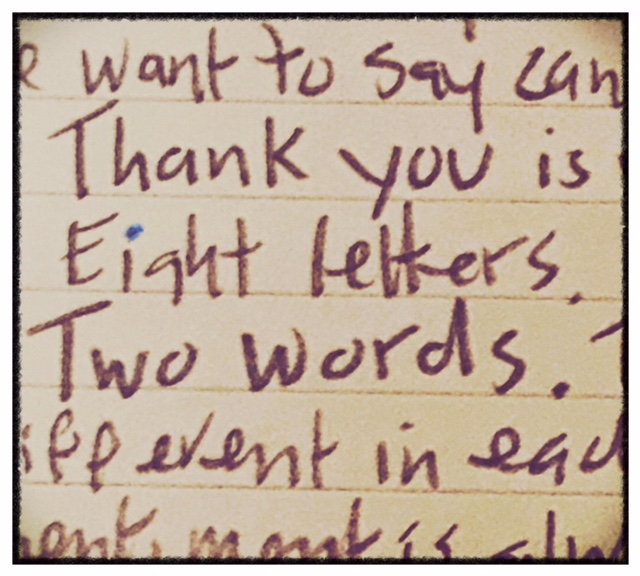 e want to say can
Thank you is
Eight letters.
Two words.
ifferent in eac
is